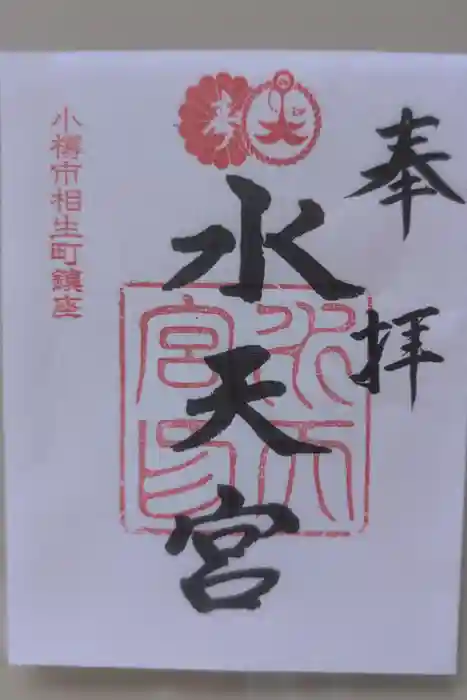 奉拝
水天宮
小樽市相生町鎮座
水天宮印